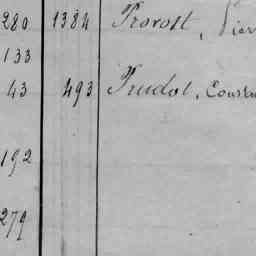 280 1384 Provost, Pier
133
43 493 Prudot, Constr
192
279